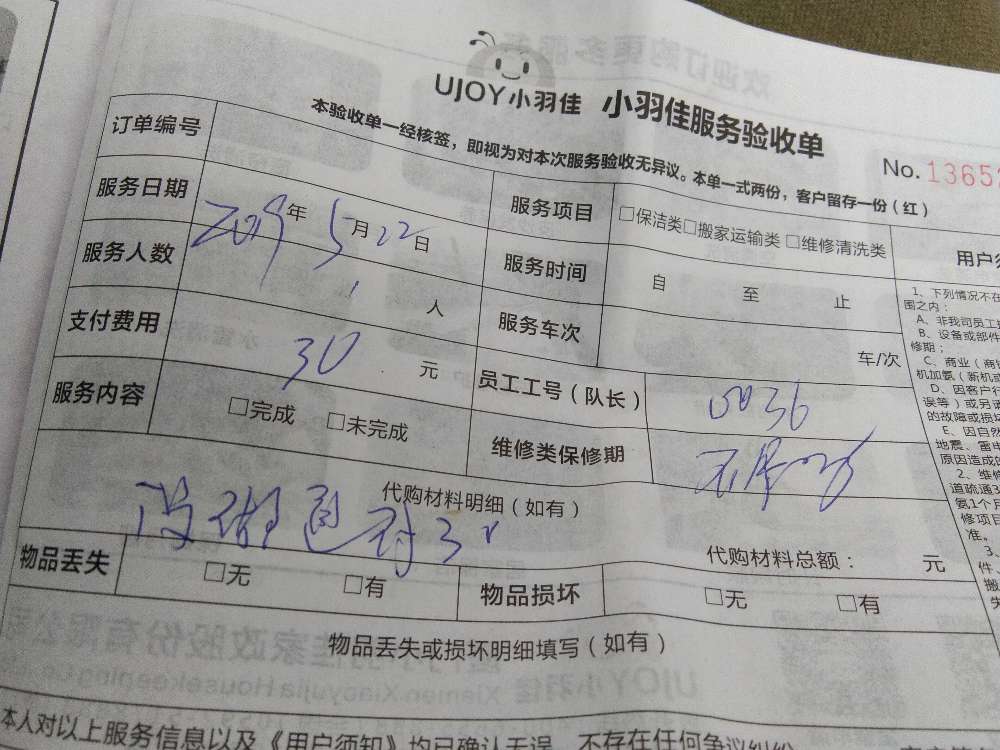 UJOY小羽佳 小羽佳服务验收单
本验收单一经核签，即视为对本次服务验收无异议。本单一式两份，客户留存一份（红）
No. 13652
订单编号
服务项目 □保洁类□搬家运输类□维修清洗类
服务日期 2019年5月22日
服务时间 自 至 止
服务人数 1人
服务车次 车/次
支付费用 30元
员工工号（队长） 0036
服务内容 □完成 □未完成
维修类保修期
代购材料明细（如有）
代购材料总额： 元
物品丢失 □无 □有
物品损坏 □无 □有
物品丢失或损坏明细填写（如有）
本人对以上服务信息以及《用户须知》均已确认无误，不存在任何争议纠纷
用户须
1、下列情况不在
围之内：
A、非我司员工
B、设备或部件
修期；
C、商业（商
机加氨（新机或
D、因客户行
误等）或另请
的故障或损坏
E、因自然
地震、雷电
原因造成的
2、维修
道疏通3
氨1个月
修项目
准。
3、
件、
搬
失